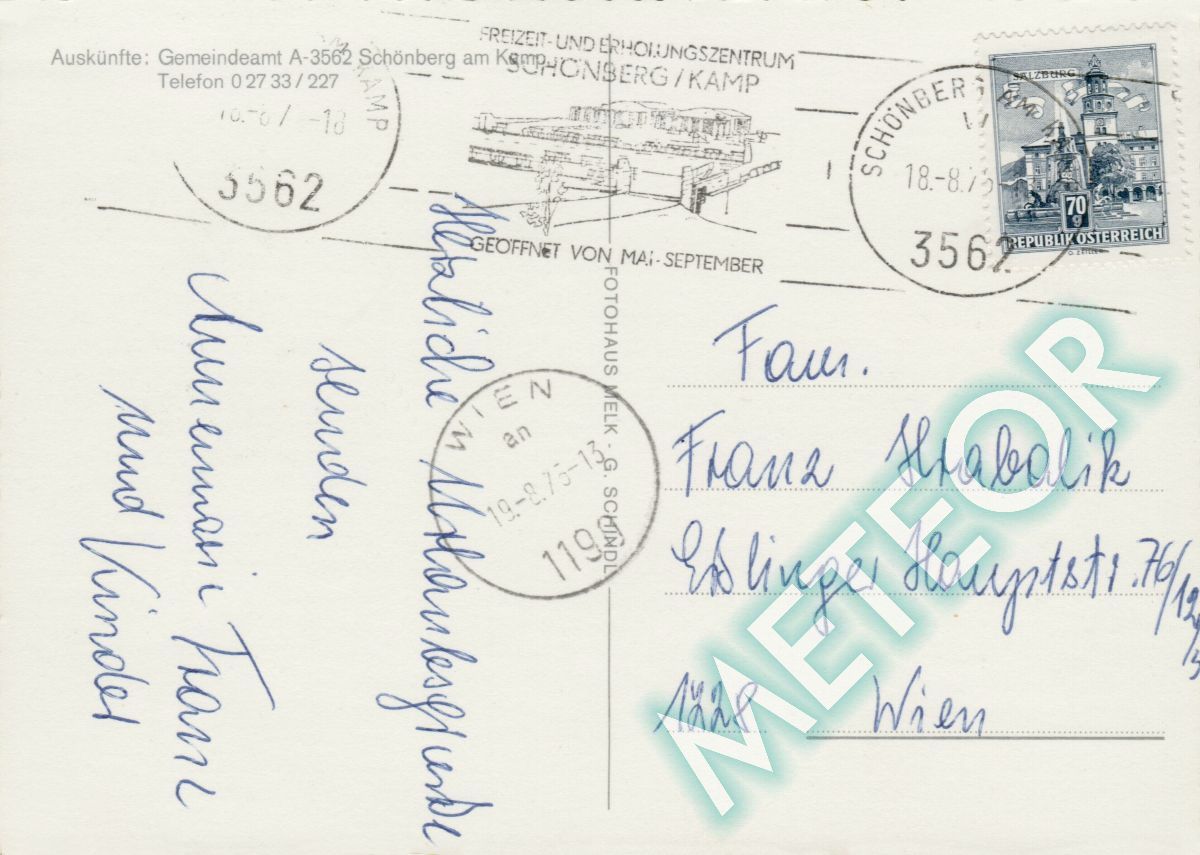 Auskünfte: Gemeindeamt A-3562 Schönberg am Kamp
Telefon 0 27 33 / 227
KAMP
-18
3562
FREIZEIT- UND ERHOLUNGSZENTRUM
SCHÖNBERG / KAMP
GEÖFFNET VON MAI-SEPTEMBER
SCHÖNBERG AM
18.-8.75
3562
SALZBURG
70
g
REPUBLIK ÖSTERREICH
Herzliche Urlaubsgrüße
senden
Annemarie Franz
und Kinder
WIEN
an
19.-8.75-13
1190
FOTOHAUS MELK - G. SCHINDL
Fam.
Franz Hrabalik
Eßlinger Hauptstr. 76/12
1228 Wien
METEOR